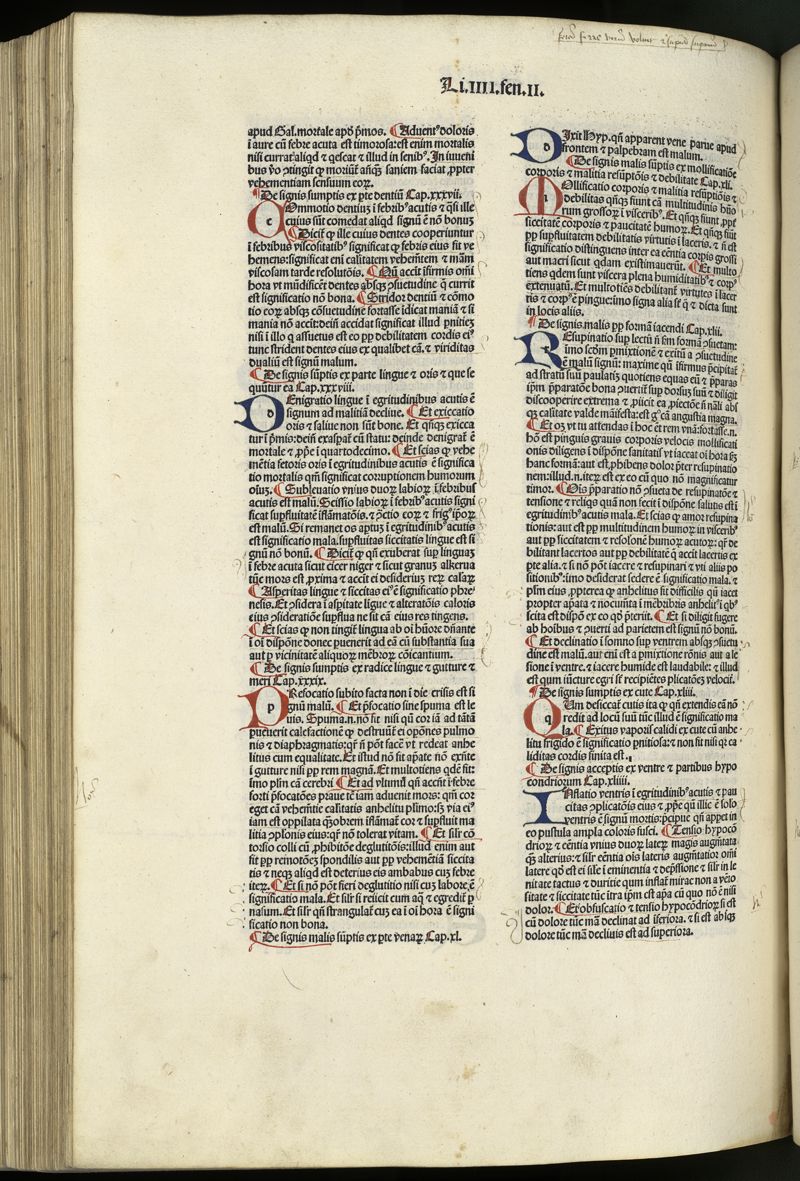 Li.IIII.fen.II.
apud Gal. mortale apd̄ p̄mos. Aduent⁹ doloris
ī aure cū febre acuta est timorosa: est enim mortalis
nisi currat aliqd̄ ⁊ qescat ⁊ illud in senib⁹. In iuueni
bus v̄o ꝯtingit ꝙ moriūt̄ añqꝫ saniem faciat ꝓpter
vehementiam sensuum eoꝝ.
De signis sumptis ex ꝑte dentiū Cap.xxxvii.
Commotio dentiuꝫ ī febrib⁹ acutis ⁊ qn̄ ille
cuius sūt comedat aliqd signū ē nō bonuꝫ
Dicit̄ ꝙ ille cuius dentes cooperiuntur
ī febribus viscositatib⁹ significat ꝙ febris eius fit ve
hemens: significat eni calitatem vehemēt̄ ⁊ mām
viscosam tarde resolutōis. Nū accit īfirmis oīni
hora vt mūdificēt dentes absqꝫ ꝯsuetudine q̄ currit
est significatio nō bona. Stridor dentiū ⁊ cōmo
tio eoꝝ absqꝫ cōsuetudine fortasse īdicat maniā ⁊ si
mania nō accit: dein̄ accidat significat illud pnitiēꝫ
nisi ī illo q assuetus est eo pp debilitatem cordis ei⁹
tunc strident dentes eius ex qualibet cā. ⁊ viriditas
dualiū est signū malum.
De signis sūptis ex parte lingue ⁊ oris ⁊ que se
quūtur ea Cap.xxxviii.
Denigratio lingue ī egritudinibus acutis ē
signum ad malitiā decliue. Et exiccatio
oris ⁊ saliue non sūt bone. Et qn̄qꝫ exicca
tur ī p̄mis: dein̄ exasꝑat̄ cū statu: deinde denigrat̄ ē
mortale ⁊ ꝓpe ī quartodecimo. Et scias ꝙ vehe
mētia fetoris oris ī egritudinibus acutis ē significa
tio mortalis qm̄ significat corruptionem humorum
oīuꝫ. Subleuatio vnius duoꝝ labioꝝ ī febribus
acutis est malū. Scissio labioꝝ ī febrib⁹ acutis signi
ficat supfluitatē īflāmatōis. ⁊ ꝯctio eoꝝ ⁊ frig⁹ ip̄oꝝ
est malū. Si remanet os aptuꝫ ī egritudinib⁹ acutis
est significatio mala. supfluitas siccitatis lingue est si
gnū nō bonū. Dicit̄ ꝙ qn̄ exuberat sup linguaꝫ
ī febre acuta sicut cicer niger ⁊ sicut granuꝫ alkerua
tūc mors est ꝓxima ⁊ accit ei desideriuꝫ reꝝ calaꝝ
Asperitas lingue ⁊ siccitas ei⁹ ē significatio phre
nesis. Et ꝯsidera ī aspitate līgue ⁊ alteratōis caloris
eius ꝯsideratiōe supflua ne sit cā eius res tingens.
Et scias ꝙ non tingit̄ lingua ab oī hūore dn̄ante
ī oī dispōne donec pueniret ad eā cū substantia sua
aut p vicinitatē aliquoꝝ mēbroꝝ cōicantium.
De signis sumptis ex radice lingue ⁊ gutture ⁊
meri Cap.xxxix.
Prefocatio subito facta non ī die crisis est si
gnū malū. Et p̄focatio sine spuma est le
uis. Spuma.n.nō fit nisi qū cor iā ad tātā
puenerit calefactionē ꝙ destruūt̄ ei opōnes pulmo
nis ⁊ diaphragmatis: qr̄ n̄ pōt facē vt redeat anhe
litus cum equalitate. Et istud nō fit apate nō exn̄te
ī gutture nisi pp rem magnā. Et multotiens qdē fit:
īmo pl̄m cā cerebri Et ad vltimū qn̄ accit ī febre
forti p̄focatōes praue tē iam aduenit mors: qm̄ cor
eget cā vehemētie calitatis anhelitu pl̄imo: sꝫ via ei⁹
iam est oppilata qꝫobrem īflāmat̄ cor ⁊ supfluit ma
litia ꝯplsonis eius: qr̄ nō tolerat vitam. Et sil̄r cō
torsio colli cū ꝓhibitōe deglutitōis: illud enim aut
fit pp remotōeꝫ spondilis aut pp vehemētiā siccita
tis ⁊ neqꝫ aliqd est deterius eis ambabus cuꝫ febre
iteꝝ. Et si nō pōt fieri deglutitio nisi cuꝫ labore: ē
significatio mala. Et sil̄r si reiicit cum aq̄ ⁊ egredit̄ p
nasum. Et sil̄r qn̄ strangulat̄ cuꝫ ea ī oī hora ē signi
ficatio non bona.
De signis malis sūptis ex ꝑte venaꝝ Cap.xl.
Dixit Hyp. qn̄ apparent vene parue apud
frontem ⁊ palpebram est malum.
De signis malis sūptis ex mollificatiōe
corporis ⁊ malitia resūptōis ⁊ debilitate Cap.xli.
Mollificatio corporis ⁊ malitia resūptiōis ⁊
debilitas qn̄qꝫ fiunt cā multitudinis hūo
rum grossoꝝ ī visceribꝰ. Et qn̄qꝫ fiunt ꝓpt̄
siccitatē corporis ⁊ paucitatē humoꝝ. Et qn̄qꝫ fiūt
pp supfluitatem debilitatis virtutis ī laceris. ⁊ n̄ est
significatio distinguens inter ea cētia corpis grossi
aut macri sicut qdam existimauerūt. Et multo
tiens qdem sunt viscera plena humiditatib⁹ ⁊ corp⁹
extenuatū. Et multotiēs debilitant̄ virtutes ī lacer
tis ⁊ corp⁹ ē pingue: īmo signa alia sē q̄ ⁊ dicta sunt
in locis aliis.
De signis malis pp formā iacendi Cap.xlii.
Resupinatio sup lectū n̄ fm formā ꝯsuetam:
īmo scd̄m pmixtionē ⁊ exitū a ꝯsuetudine
ē malū signū: maxime qn̄ īfirmus p̄cipitat̄
ad stratū suū paulatiꝫ quotiens equas eū ⁊ p̄paras
ip̄m p̄paratōe bona ꝯuertit̄ sup dorsuꝫ suū ⁊ diligit
discooperire extrema ⁊ ꝓiicit ea ꝓiectōe n̄ nāli abs
qꝫ calitate valde māifesta: est g⁰ cā angustia magna.
Et oꝫ vt tu attendas ī hoc ⁊ rem vnā: fortasse.n.
hō est pinguis grauis corporis velocis mollificati
onis diligens ī dispōne sanitatis vt iaceat oī hora sꝫ
hanc formā: aut est ꝓhibens dolor p̄ter resupinatio
nem: illud.n. iteꝝ est ex eo cū quo nō magnificatur
timor. Ois p̄paratio nō ꝯsueta de resupinatōe ⁊
tensione ⁊ reliqs quā non fecit ī dispōne salutis est ī
egritudinib⁹ acutis mala. Et scias ꝙ amor resupina
tionis: aut est pp multitudinem humoꝝ in viscerib⁹
aut pp siccitatem ⁊ resolsonē humoꝝ acutoꝝ: qr̄ de
bilitant lacertos aut pp debilitatē q̄ accit lacertis ex
ꝑte alia. ⁊ si nō pōt iacere ⁊ resupinari ⁊ vti aliis po
sitionib⁹: īmo desiderat sedere ē significatio mala. ⁊
pl̄im eius ꝓpterea ꝙ anhelitus fit difficilis qū iacet
propter apata ⁊ nocumēta ī mēbribris anhelit⁹ ī qb⁹
scita est dispō ex eo qd̄ p̄teriit. Et si diligit fugere
ab hoībus ⁊ ꝯuerti ad parietem est signū nō bonū.
Et declinatio ī somno sup ventrem absqꝫ ꝯsuetu
dine est malū. aut eni est a pmixtione rōnis aut a le
sione ī ventre. ⁊ iacere humide est laudabile: ⁊ illud
est qum iūcture egri sē recipiētes plicatōeꝫ velocit̄.
De signis sumptis ex cute Cap.xliii.
Qum desiccat̄ cutis ita ꝙ qn̄ extendis eā nō
redit ad locū suū tūc illud ē significatio ma
la. Exitus vaporis calidi ex cute cū anhe
litu frigido ē significatio pnitiosa: ⁊ non fit nisi qr̄ ca
liditas cordis finita est.
De signis acceptis ex ventre ⁊ partibus hypo
condriorum Cap.xliiii.
Inflatio ventris ī egritudinib⁹ acutis ⁊ pau
citas ꝯplicatōis eius ⁊ ꝓpe qn̄ illic ē solo
ventris ē signū mortis: p̄cipue qn̄ appet in
eo pustula ampla coloris fusci. Tensio hypocō
drioꝝ ⁊ cētia vnius duoꝝ lateꝝ magis augm̄tata
qꝫ alterius: ⁊ sil̄r cētia oīs lateris augmētatior oīni
latere qd̄ est ei sil̄e ī eminentia ⁊ dep̄ssione ⁊ sil̄r in le
nitate tactus ⁊ duritie qum inflat̄ mirac non a vēto
sitate ⁊ siccitate tūc itra ip̄m est apa cū quo nō ē nisi
dolor. Et obfuscatio ⁊ tensio hypocōdrioꝝ si est
cū dolore tūc mā declinat ad īferiora. ⁊ si est absqꝫ
dolore tūc mā decliuis est ad superiora.